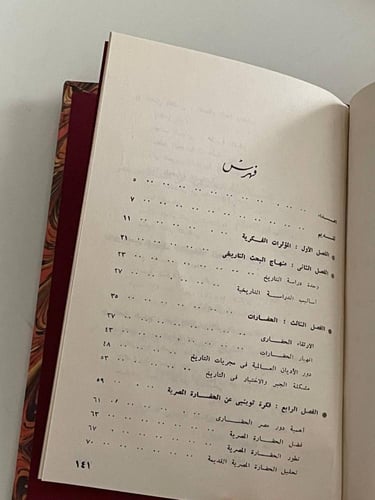 فهرس
إهداء ٥
تقديم ٧
● الفصل الأول : المؤثرات الفكرية ١١
● الفصل الثاني : منهاج البحث التاريخى ٢١
وحدة دراسة التاريخ ٢٣
أساليب الدراسة التاريخية ٢٧
● الفصل الثالث : الحضارات ٣٥
الارتقاء الحضارى ٣٧
انهيار الحضارات ٤٣
دور الأديان العالمية فى مجريات التاريخ ٤٨
مشكلة الجبر والاختيار فى التاريخ ٥٣
● الفصل الرابع : فكرة توينبى عن الحضارة المصرية ٥٩
أهمية دور مصر الحضارى ٦١
فضل الحضارة المصرية ٦٣
تطور الحضارة المصرية ٦٧
تحليل الحضارة المصرية القديمة ٧٠
١٤١